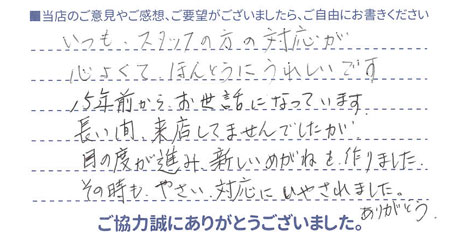 ■当店のご意見やご感想、ご要望がございましたら、ご自由にお書きください
いつも、スタッフの方の対応が
心よくて ほんとうに うれしいです
15年前から、お世話になっています。
長い間、来店してませんでしたが
目の度が進み、新しいめがねを作りました。
その時も やさい 対応に いやされました。
ありがとう。
ご協力誠にありがとうございました。